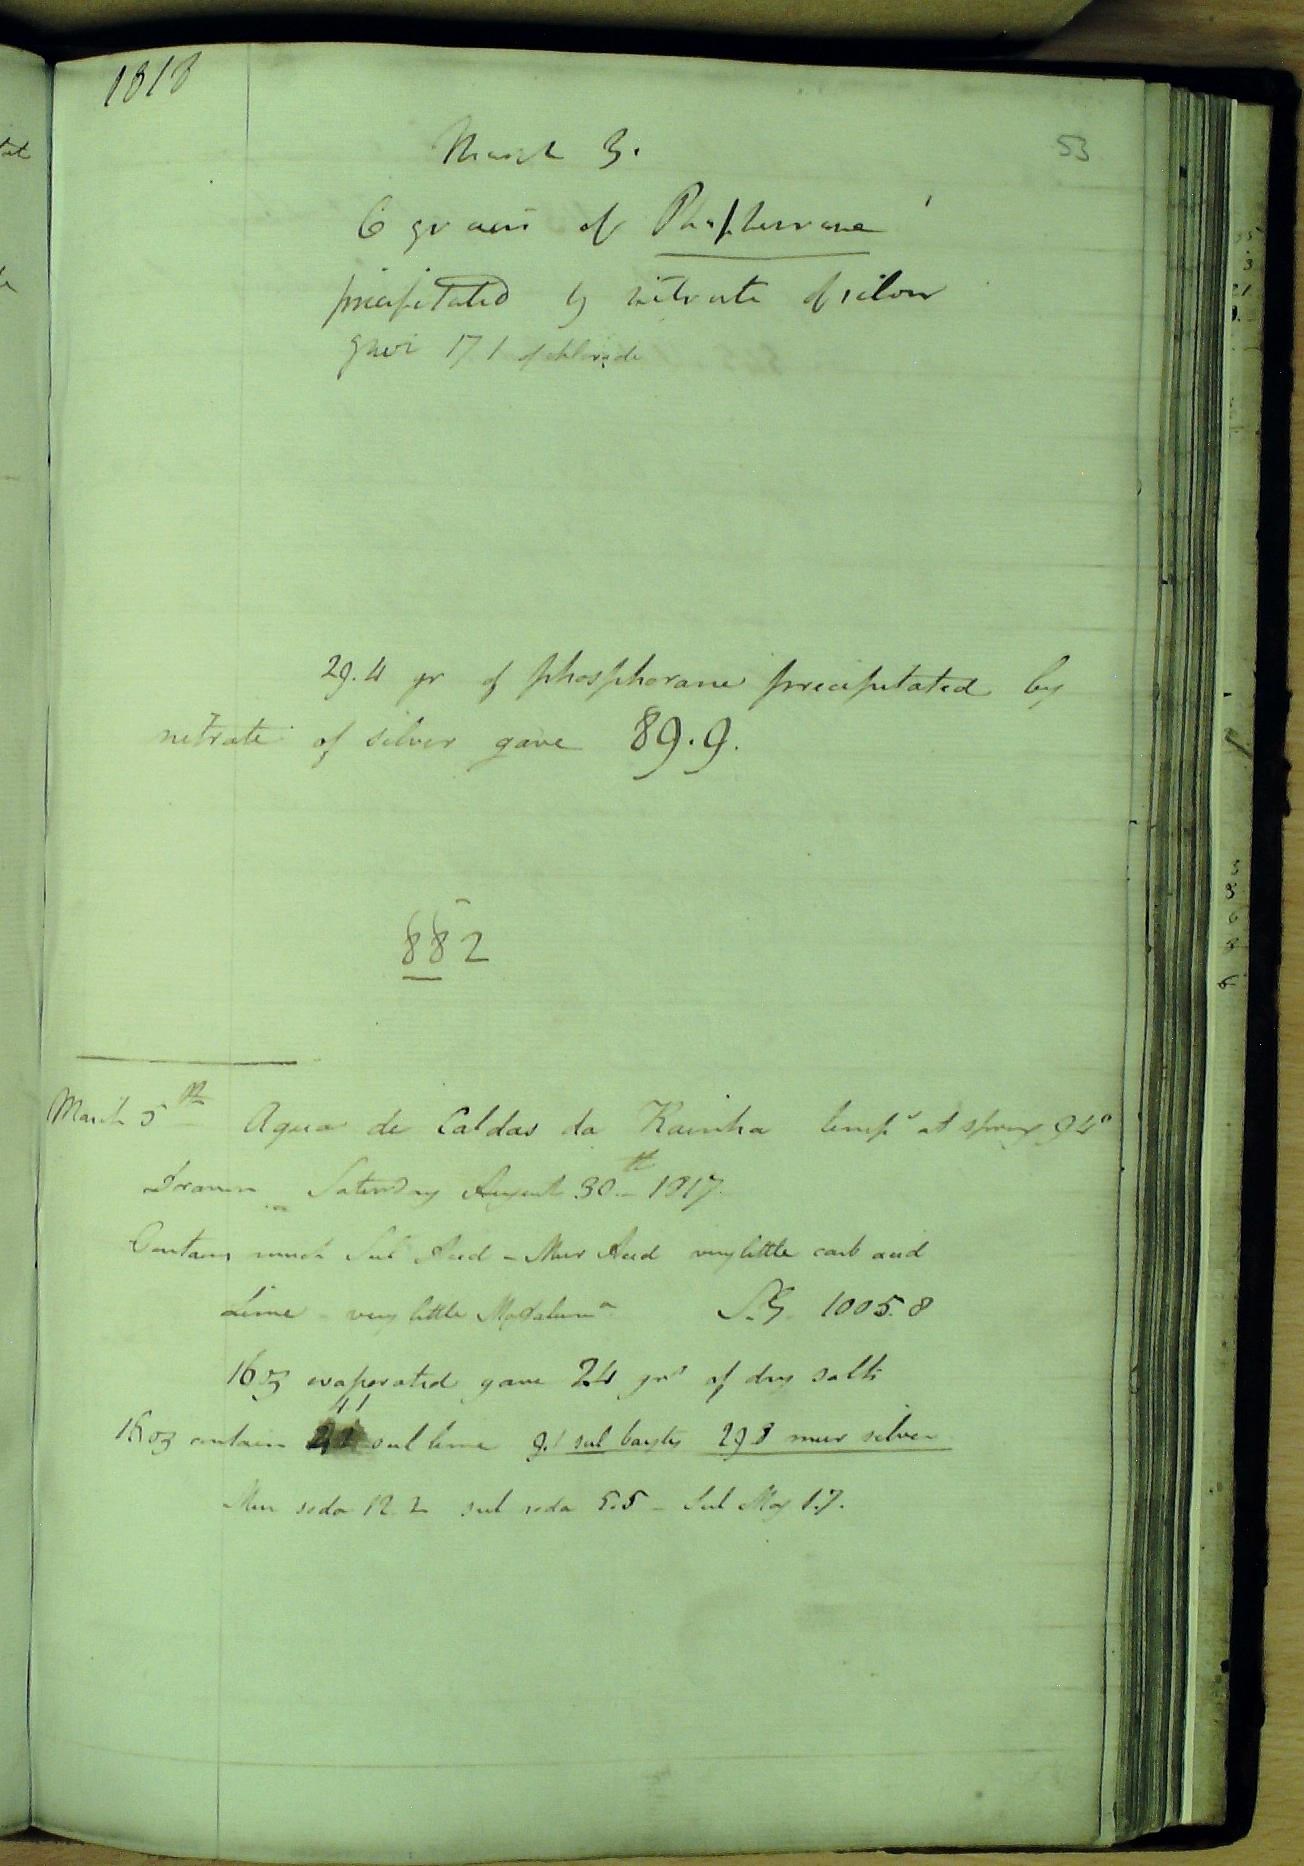 1818
March 3.
53
6 grains of Phosphorane
precipitated by nitrate of silver
gave 17.1 of chloride
29.4 gr of phosphorane precipitated by
nitrate of silver gave 89.9.
882
March 5th Agua de Caldas da Rainha tempr at spring 94°
Drawn Saturday August 30th 1817.
Contains much Sul Acid - Mur Acid very little carb acid
Lime - very little Mag S.G. 1005.8
16 oz evaporated gave 24 grs of dry salts
41
16 oz contain sul lime 9.1 sul barytes 29.8 mur silver
Mur soda 12.2 sul soda 5.5 - Sul Mag 1.7.